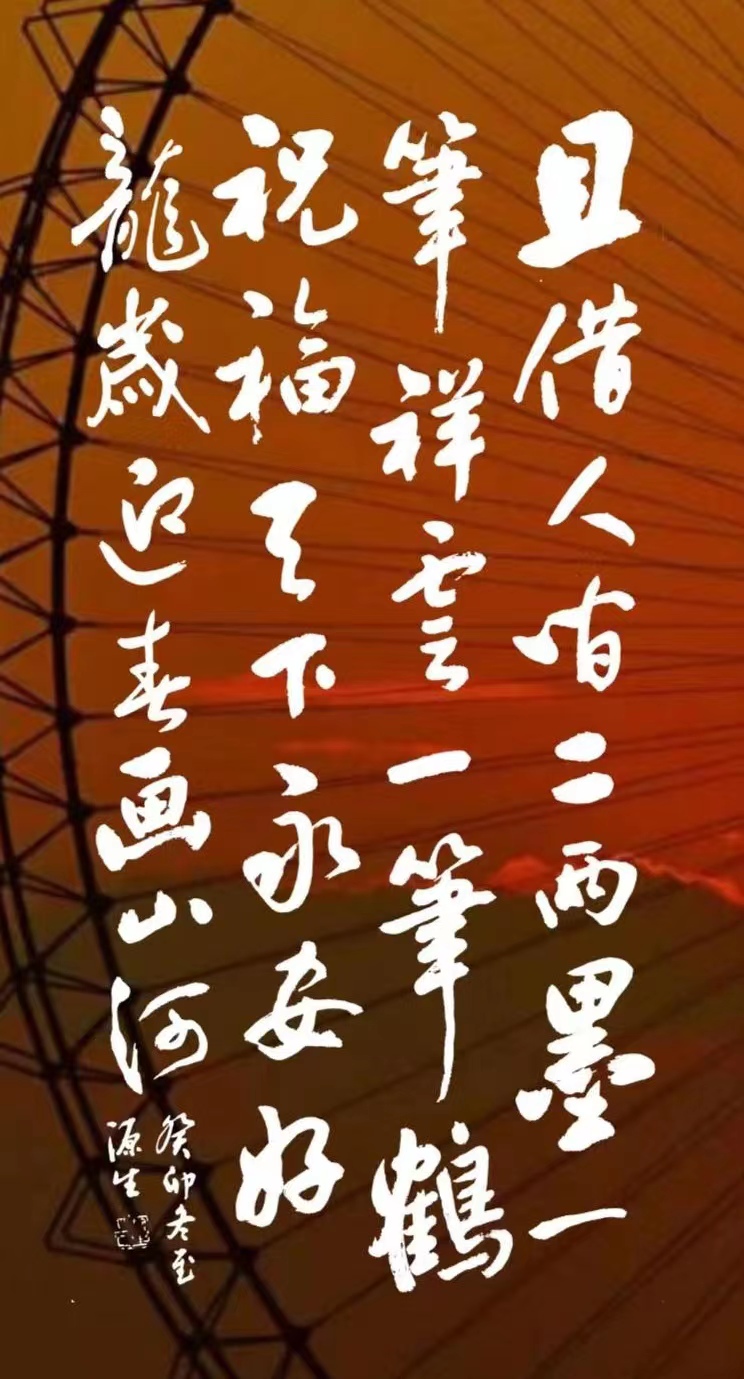 且借人間二兩墨一
筆祥雲一筆鶴
祝福天下永安好
龍歲迎春画山河
癸卯冬至
源生